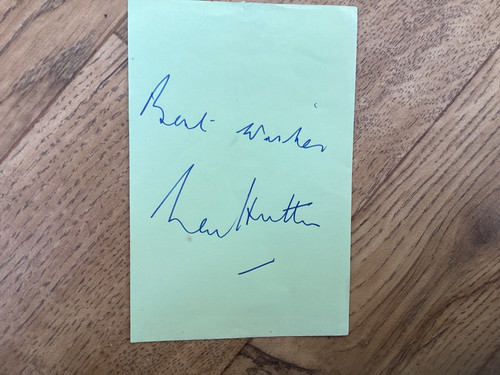 Best wishes
Len Hutton